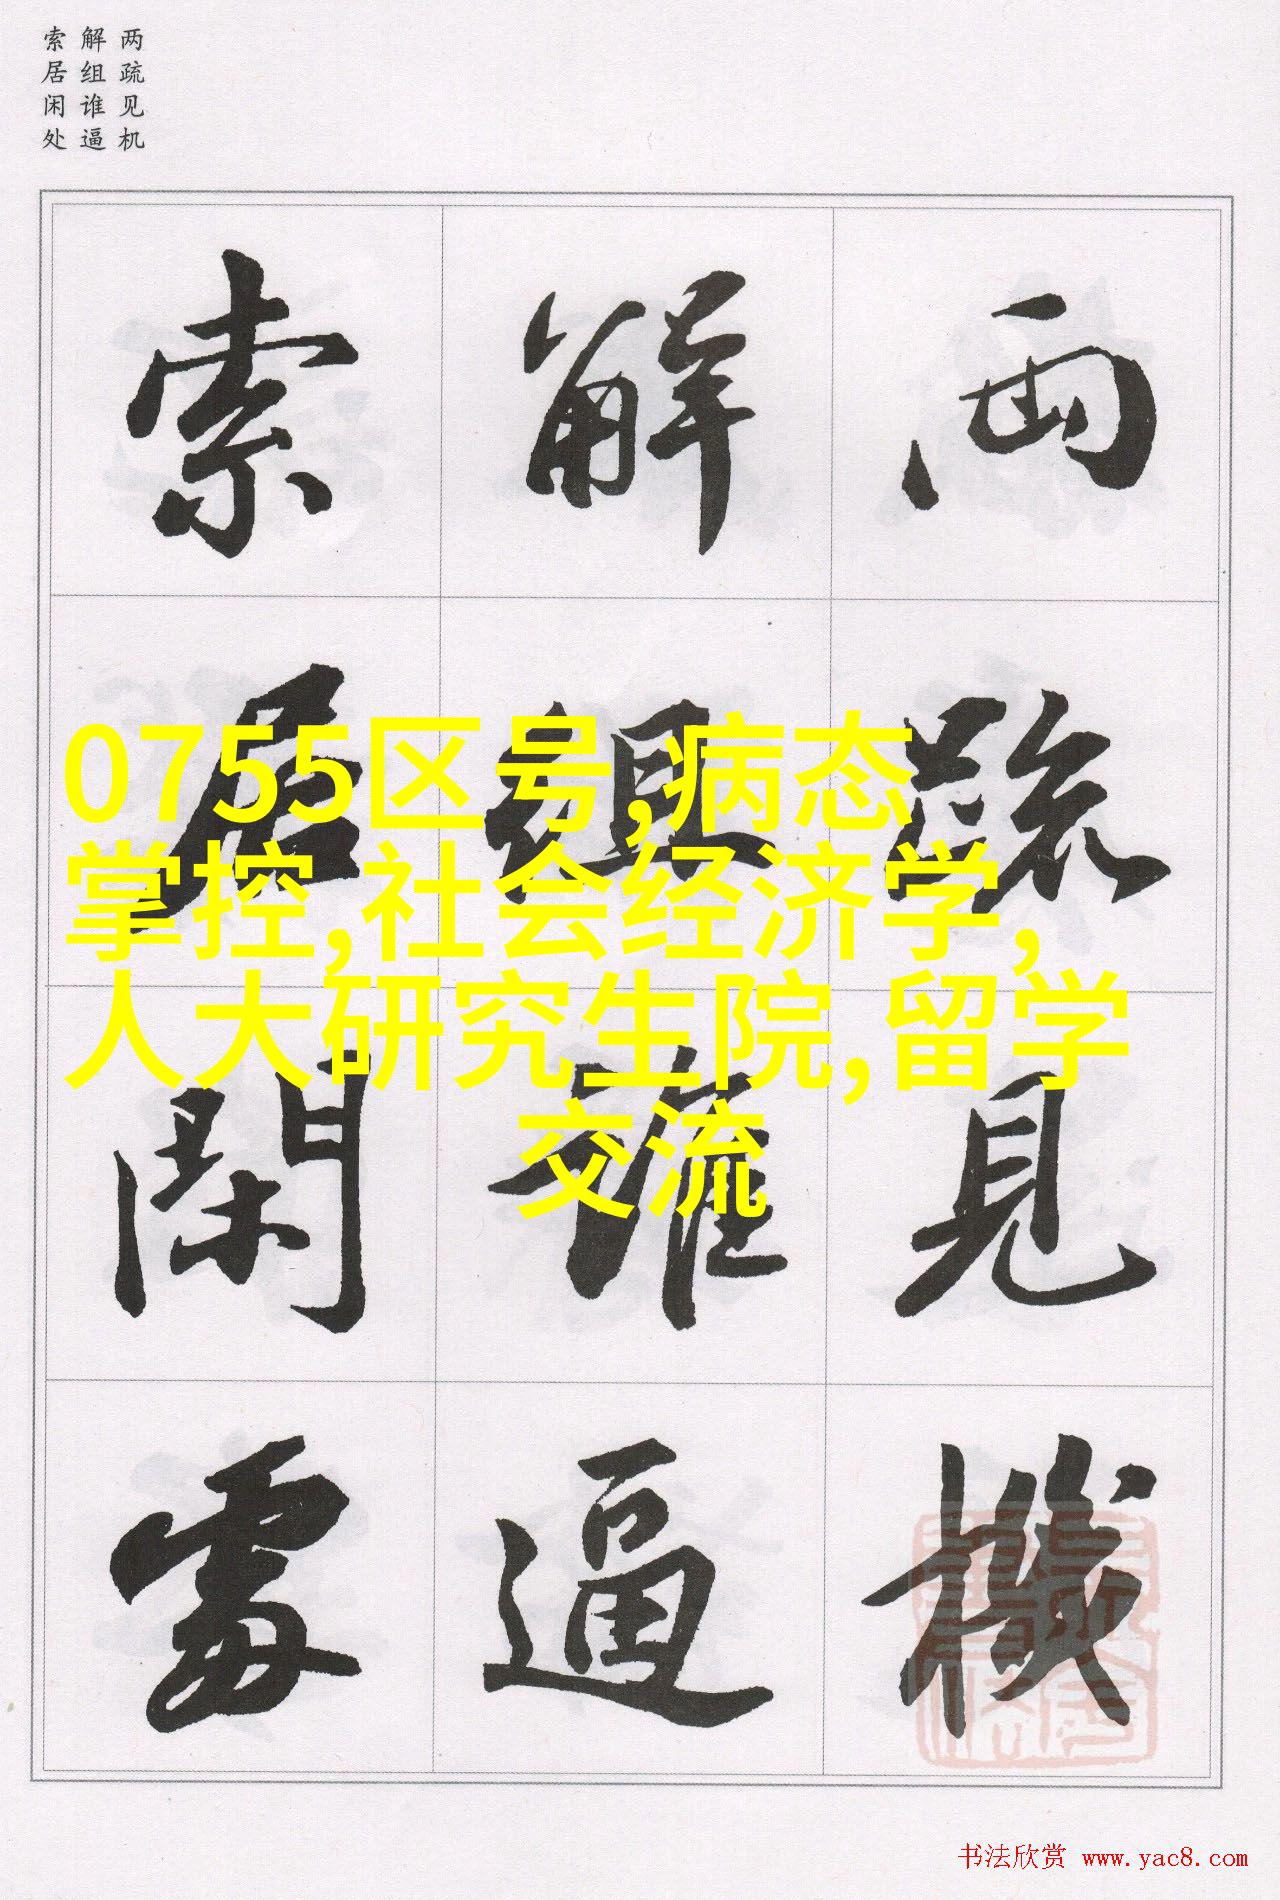 两疏见机
解组谁逼
索居闲处
兩疏見機
解組誰逼
索居閑處
0755区号,病态
掌控,社会经济学,
人大研究生院,留学
交流
书法欣赏 www.yac8.com